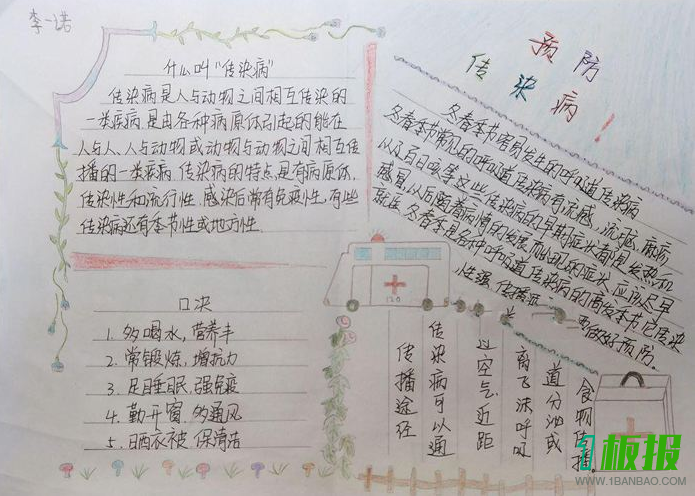 李一诺
预防
传染病！
什么叫“传染病”
传染病是人与动物之间相互传染的
一类疾病是由各种病原体引起的能在
人与人、人与动物或动物与动物之间相互传
播的一类疾病 传染病的特点是有病原体,
传染性和流行性 感染后常有免疫性,有些
传染病还有季节性或地方性.
冬春季节容易发生的呼吸道传染病
冬春季节常见的呼吸道传染病有流感,
以及百日咳等这些传染病的早期症状都是发热和
感冒,以后随着病情的发展而出现 症状 应该尽早
就医.冬春季是各种呼吸道传染病的高发季节它传染
性强,传播 要做好预防.
120
口决
1. 多喝水,营养丰
2. 常锻炼,增抗力
3. 足睡眠,强免疫
4. 勤开窗 多通风
5. 日晒衣被 保清洁
传播途径
传染病可以通
过空气.近距
离飞沫呼吸
道分泌或
食物传播.
1板报
WWW.1BANBAO.COM